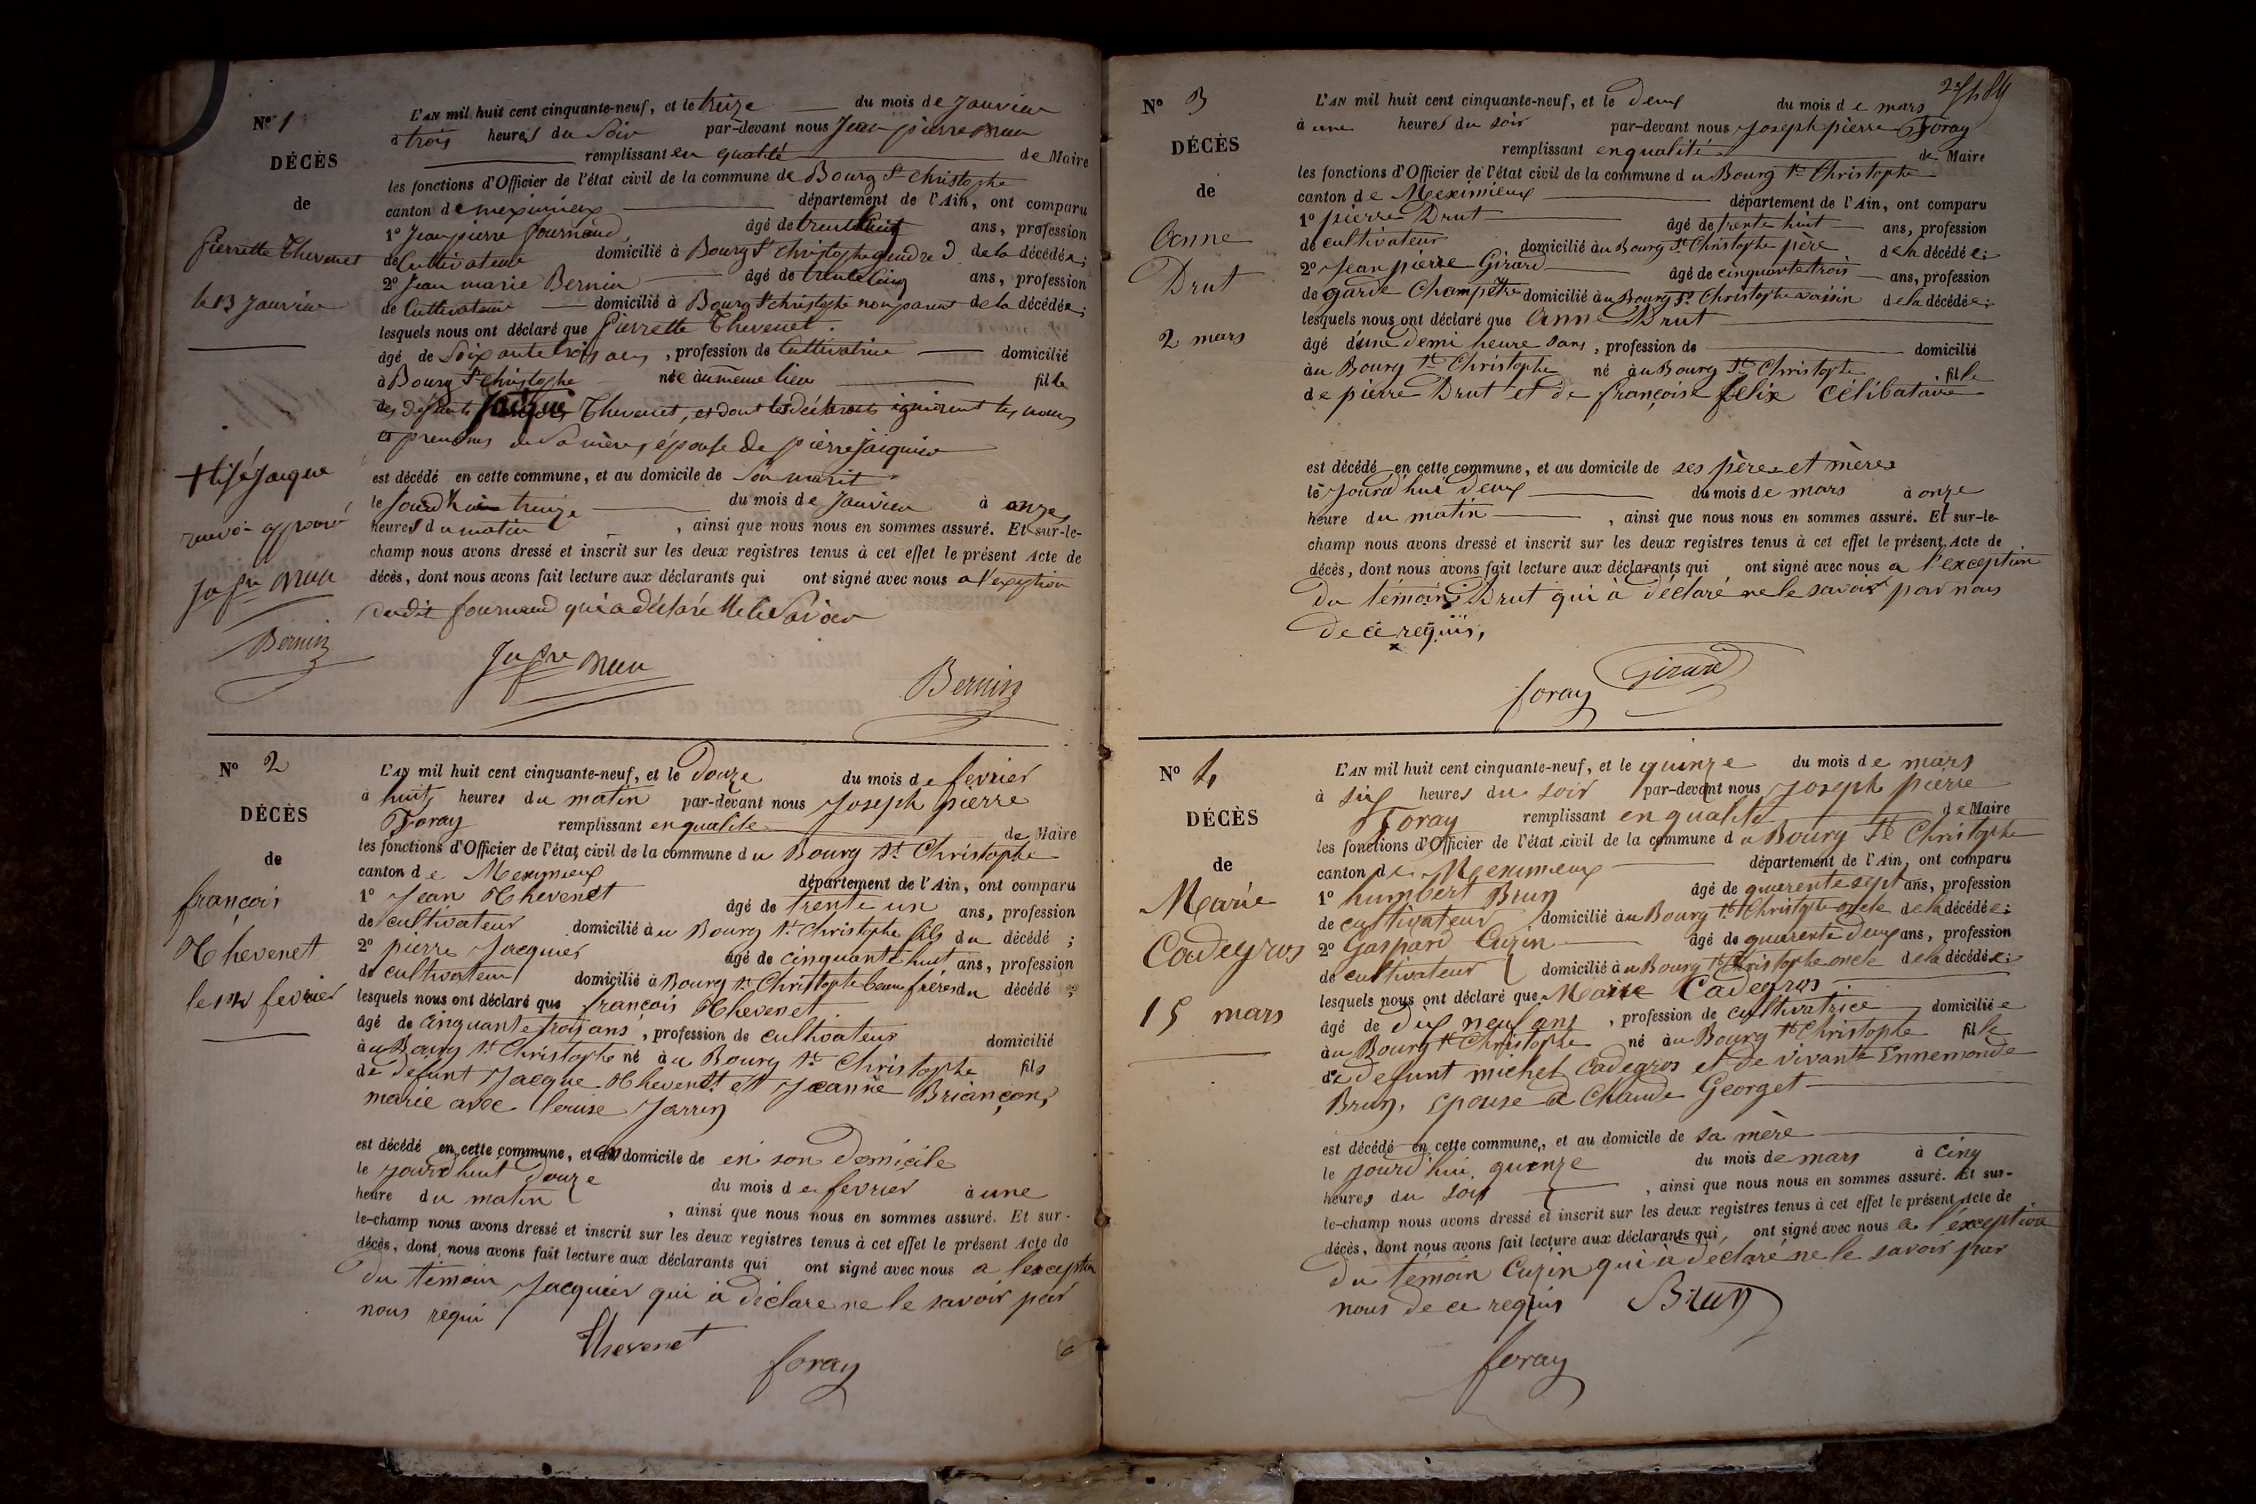 N° 1
DÉCÈS
de
Pierrette Thevenet
le 13 Janvier
L'AN mil huit cent cinquante-neuf, et le treize du mois de Janvier
à trois heures du Soir par-devant nous Jean pierre
remplissant en qualité de Maire
les fonctions d'Officier de l'état civil de la commune de Bourg St Christophe
canton de meximieux département de l'Ain, ont comparu
1° Jean pierre fournand âgé de trente huit ans, profession
de Cultivateur domicilié à Bourg St Christophe gendre de la décédée;
2° Jean marie Bernin âgé de trente Cinq ans, profession
de Cultivateur domicilié à Bourg St christophe non parent de la décédée;
lesquels nous ont déclaré que Pierrette Thevenet
âgé de Soixante trois ans, profession de Cultivatrice domicilié
à Bourg St Christophe née au même lieu fille
des défunts Jaique Thevenet, et dont les déclarants ignorent les noms
et prenoms de Sa mère, épouse de pierre Jaiquier
est décédé en cette commune, et au domicile de Son marit
le Jourd'hui treize du mois de Janvier à onze
heures du matin, ainsi que nous nous en sommes assuré. Et sur-le-
champ nous avons dressé et inscrit sur les deux registres tenus à cet effet le présent Acte de
décès, dont nous avons fait lecture aux déclarants qui ont signé avec nous a l'exeption
dudit fournand qui a déclaré ne le Savoir
+ lisé Jaique
renvoi approuvé
Bernin
Bernin
N° 2
DÉCÈS
de
françois
Thevenet
le 12 fevrier
L'AN mil huit cent cinquante-neuf, et le Douze du mois de fevrier
à huit heures du matin par-devant nous Joseph pierre
Foray remplissant en qualite de Maire
les fonctions d'Officier de l'état civil de la commune du Bourg St Christophe
canton de Meximieux département de l'Ain, ont comparu
1° Jean Thevenet âgé de trente un ans, profession
de cultivateur domicilié au Bourg St Christophe fils du décédé;
2° pierre Jacquier âgé de cinquante huit ans, profession
de cultivateur domicilié à Bourg St Christophe beau frère du décédé;
lesquels nous ont déclaré que françois Thevenet
âgé de cinquante trois ans, profession de cultivateur domicilié
au Bourg St Christophe né au Bourg St Christophe fils
de defunt Jacque Thevenet et Jeanne Briançon,
marie avec louise Jarrin
est décédé en cette commune, et au domicile de en son Domicile
le jourd'huit douze du mois de fevrier à une
heure du matin, ainsi que nous nous en sommes assuré. Et sur-
le-champ nous avons dressé et inscrit sur les deux registres tenus à cet effet le présent Acte de
décès, dont nous avons fait lecture aux déclarants qui ont signé avec nous a l'exception
du témoin Jacquier qui à déclare ne le savoir par
nous requi
Thevenet
foray
N° 3
DÉCÈS
de
Anne
Drut
2 mars
L'AN mil huit cent cinquante-neuf, et le deux du mois de mars
à une heures du soir par-devant nous Joseph pierre Foray
remplissant en qualité de Maire
les fonctions d'Officier de l'état civil de la commune du Bourg St Christophe
canton de Meximieux département de l'Ain, ont comparu
1° pierre Drut âgé de trente huit ans, profession
de cultivateur domicilié au Bourg St Christophe père de la décédée;
2° Jean pierre Girard âgé de cinquante trois ans, profession
de garde Champêtre domicilié au Bourg St Christophe voisin de la décédée;
lesquels nous ont déclaré que Anne Drut
âgé d'une demi heure sans, profession de domicilié
au Bourg St Christophe né au Bourg St Christophe, fille
de pierre Drut et de françoise felix Célibataire
est décédé en cette commune, et au domicile de ses pères et mères
le Jourd'hui deux du mois de mars à onze
heure du matin, ainsi que nous nous en sommes assuré. Et sur-le-
champ nous avons dressé et inscrit sur les deux registres tenus à cet effet le présent Acte de
décès, dont nous avons fait lecture aux déclarants qui ont signé avec nous a l'exception
Du témoin Drut qui à déclaré ne le savoir par nous
de ce requis,
Girard
foray
N° 4
DÉCÈS
de
Marie
Cadegros
15 mars
L'AN mil huit cent cinquante-neuf, et le quinze du mois de mars
à six heures du soir par-devant nous Joseph pierre
Foray remplissant en qualité de Maire
les fonctions d'Officier de l'état civil de la commune du Bourg St Christophe
canton de Meximieux département de l'Ain, ont comparu
1° humbert Brun âgé de quarente sept ans, profession
de cultivateur domicilié au Bourg St Christophe oncle de la décédée;
2° Gaspard Cuzin âgé de quarente deux ans, profession
de cultivateur domicilié au Bourg St Christophe oncle de la décédée;
lesquels nous ont déclaré que Marie Cadegros
âgé de dix neuf ans, profession de cultivatrice domiciliée
au Bourg St Christophe né au Bourg St Christophe fille
de defunt michel Cadegros et de vivante Ennemonde
Brun, epouse d Claude Georget
est décédé en cette commune, et au domicile de sa mère
le jourd'hui quinze du mois de mars à cinq
heures du soir, ainsi que nous nous en sommes assuré. Et sur-
le-champ nous avons dressé et inscrit sur les deux registres tenus à cet effet le présent Acte de
décès, dont nous avons fait lecture aux déclarants qui ont signé avec nous a l'exception
du témoin Cuzin qui à déclaré ne le savoir par
nous de ce requis Brun
foray